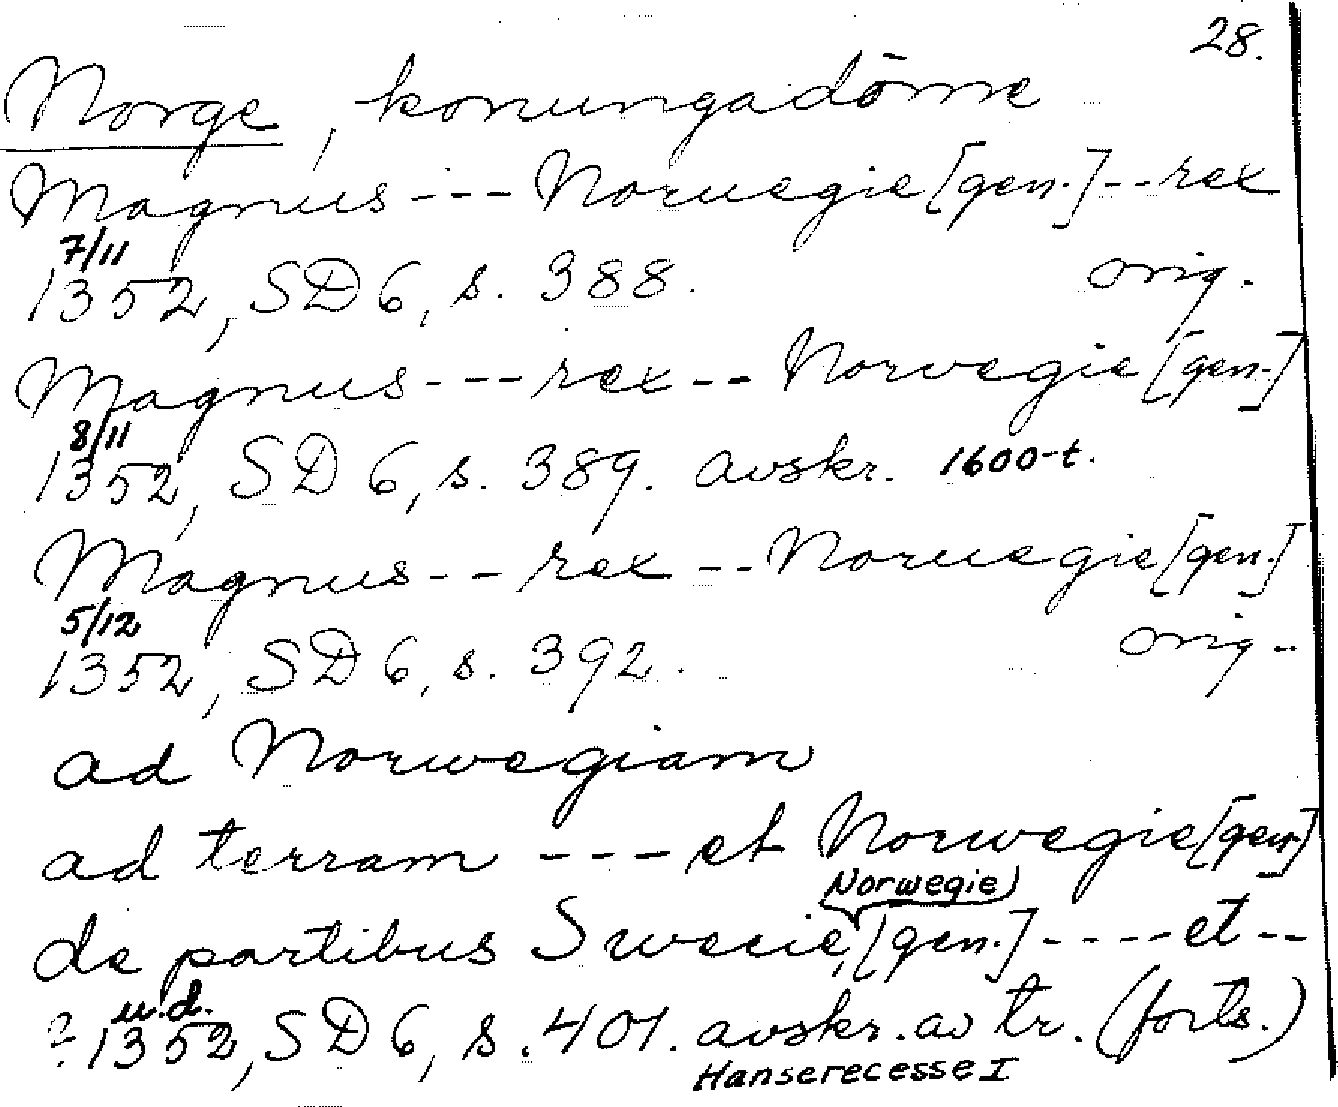 28.
Norge, konungadöme
Magnus --- Noruegie [gen.] -- rex
7/11
1352, SD 6, s. 388. orig.
Magnus --- rex -- Norvegie [gen.]
8/11
1352, SD 6, s. 389. avskr. 1600-t.
Magnus -- rex -- Noruegie [gen.]
5/12
1352, SD 6, s. 392. orig.
ad Norwegiam
ad terram --- et Norwegie [gen.]
Norwegie)
de partibus Swecie, [gen.] ---- et --
u.d.
? 1352, SD 6, s. 401. avskr. av tr. (forts.)
Hanserecesse I